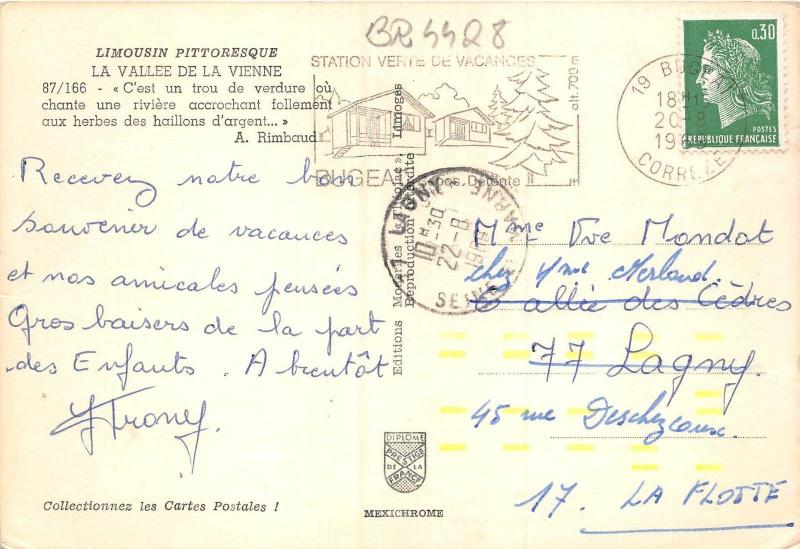 BR 4428
LIMOUSIN PITTORESQUE
LA VALLEE DE LA VIENNE
87/166 - « C'est un trou de verdure où
chante une rivière accrochant follement
aux herbes des haillons d'argent... »
A. Rimbaud
Recevez notre bon
souvenir de vacances
et nos amicales pensées
Gros baisers de la part
des Enfants. A bientôt
Collectionnez les Cartes Postales !
STATION VERTE DE VACANCES
alt. 700 m
BUGEA
Repos, Détente
Editions Modernes « Théojac », Limoges
Reproduction Interdite
DIPLOME
PRESTIGE
DE LA
FRANCE
MEXICHROME
19 BUGEA
18H15
20-8
196
CORREZE
0,30
POSTES
REPUBLIQUE FRANÇAISE
LAGNY
MARNE
10H30
22-8
SEINE
Mme Vve Mondat
chez Mme Merland.
6 allée des Cèdres
77 Lagny.
45 rue
17. LA FLOTTE